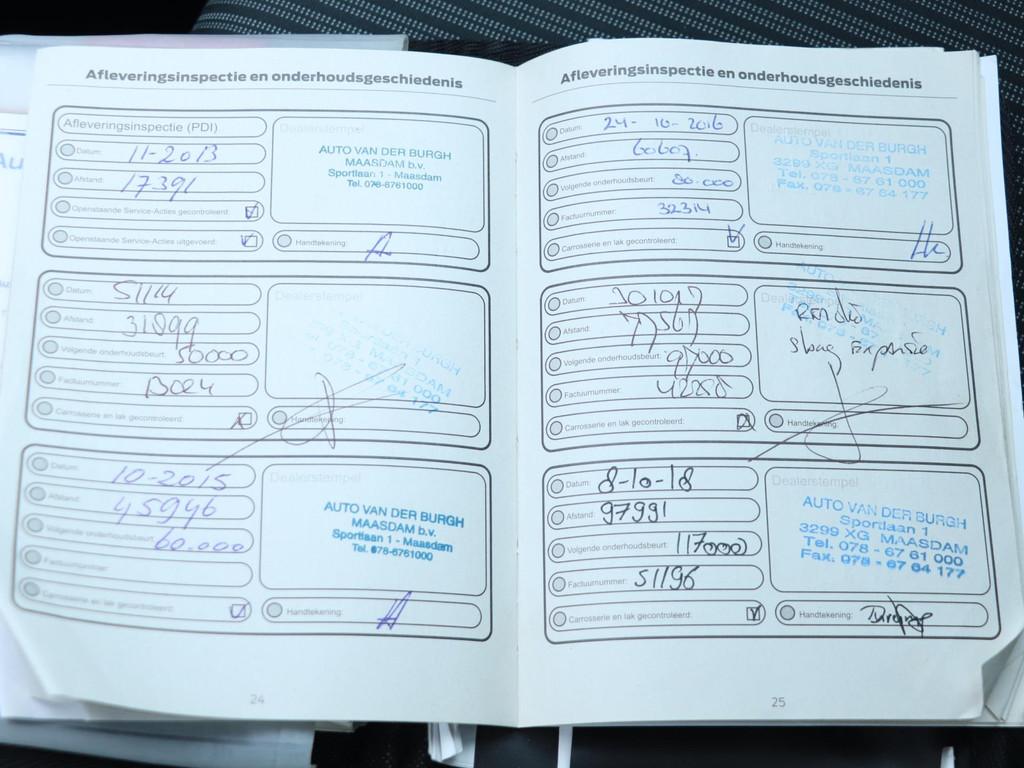 Afleveringsinspectie en onderhoudsgeschiedenis
Afleveringsinspectie (PDI)
Datum: 11-2013
Afstand: 17391
Openstaande Service-Acties gecontroleerd:
Openstaande Service-Acties uitgevoerd:
Dealerstempel
AUTO VAN DER BURGH
MAASDAM b.v.
Sportlaan 1 - Maasdam
Tel. 078-6761000
Handtekening:
Datum:
Afstand: 31899
Volgende onderhoudsbeurt: 50000
Factuurnummer:
Carrosserie en lak gecontroleerd:
Dealerstempel
Handtekening:
Datum: 10-2015
Afstand: 45946
Volgende onderhoudsbeurt: 60.000
Factuurnummer:
Carrosserie en lak gecontroleerd:
Dealerstempel
AUTO VAN DER BURGH
MAASDAM b.v.
Sportlaan 1 - Maasdam
Tel. 078-6761000
Handtekening:
24
Afleveringsinspectie en onderhoudsgeschiedenis
Datum: 24-10-2016
Afstand: 60607.
Volgende onderhoudsbeurt: 80.000
Factuurnummer: 32314
Carrosserie en lak gecontroleerd:
Dealerstempel
AUTO VAN DER BURGH
Sportlaan 1
3299 XG MAASDAM
Tel. 078 - 67 61 000
Fax. 078 - 67 64 177
Handtekening:
Datum: 301017
Afstand:
Volgende onderhoudsbeurt:
Factuurnummer:
Carrosserie en lak gecontroleerd:
Handtekening:
Datum: 8-10-18
Afstand: 97991
Volgende onderhoudsbeurt: 117000
Factuurnummer: 51196
Carrosserie en lak gecontroleerd:
Dealerstempel
AUTO VAN DER BURGH
Sportlaan 1
3299 XG MAASDAM
Tel. 078 - 67 61 000
Fax. 078 - 67 64 177
Handtekening:
25